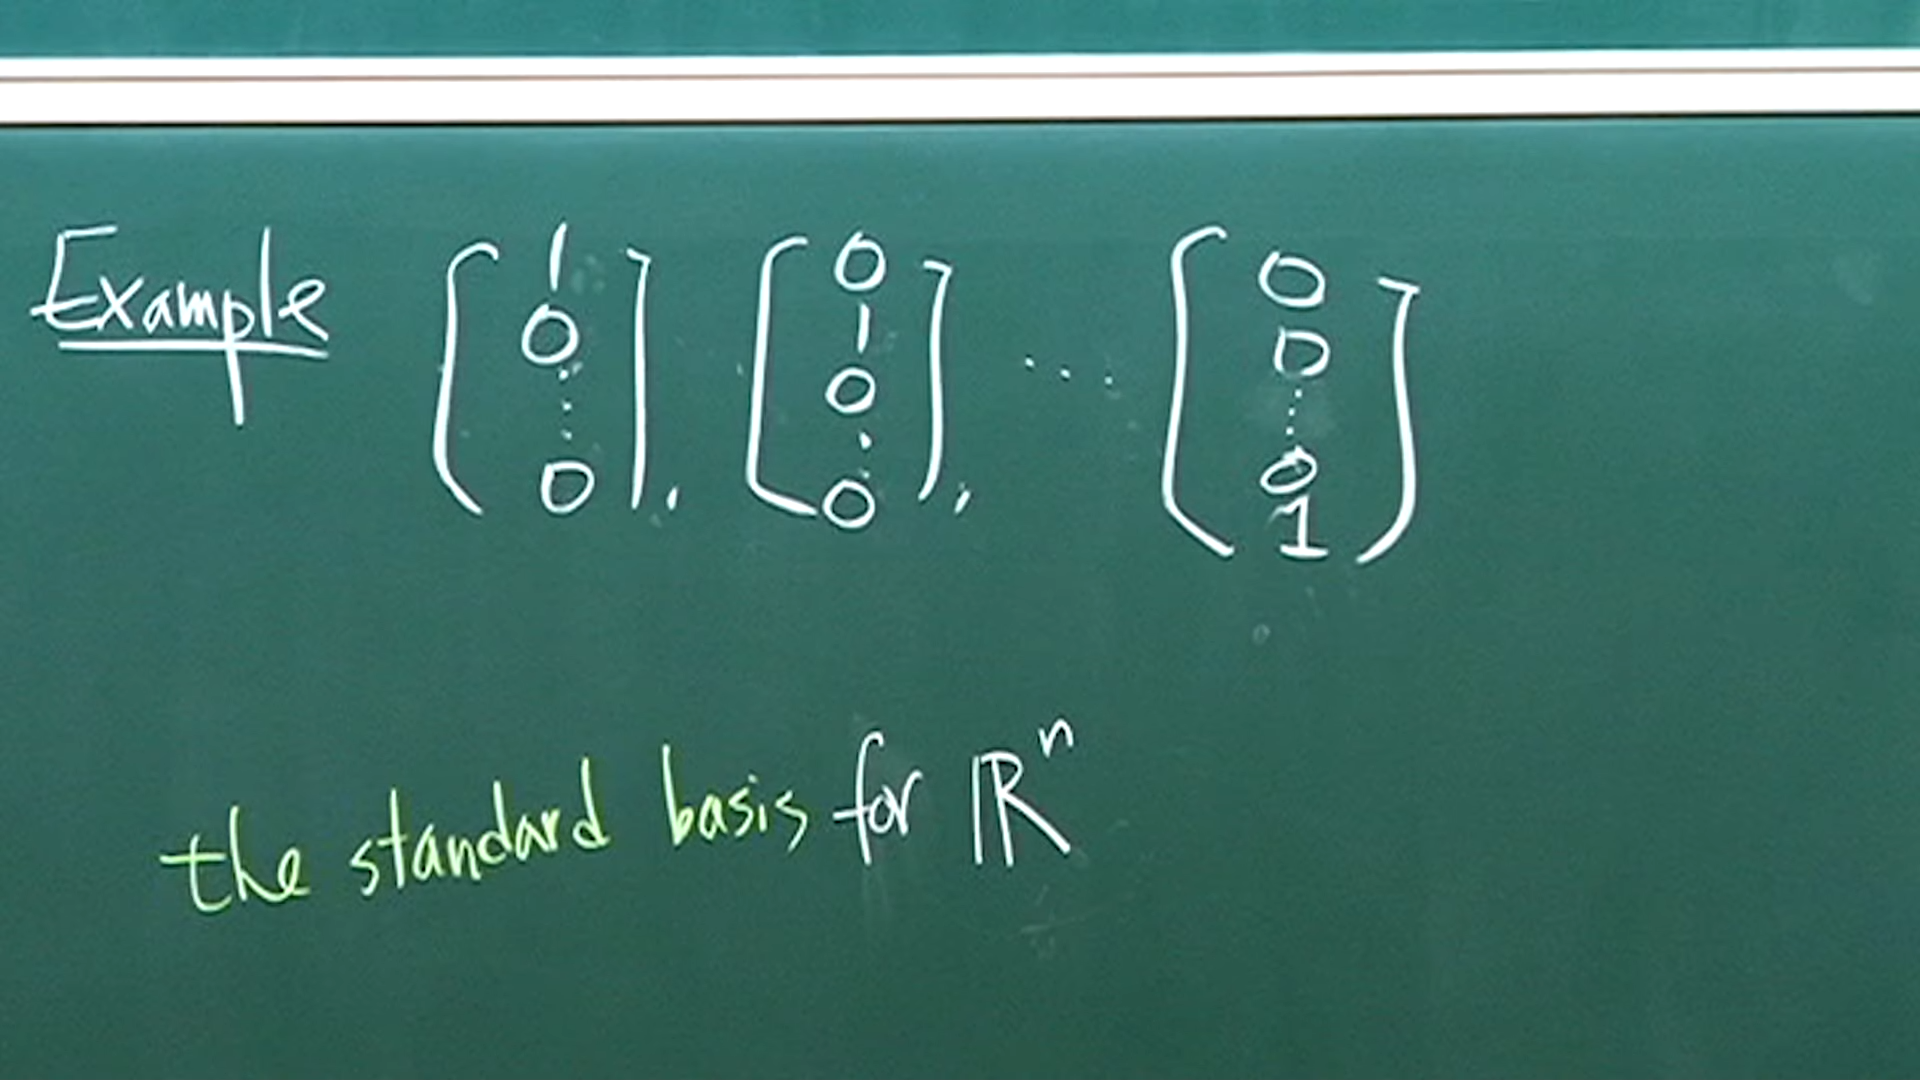 Example [1 0 ⋮ 0], [0 1 0 ⋮ 0], ⋯ [0 0 ⋮ 0 1]
the standard basis for ℝⁿ